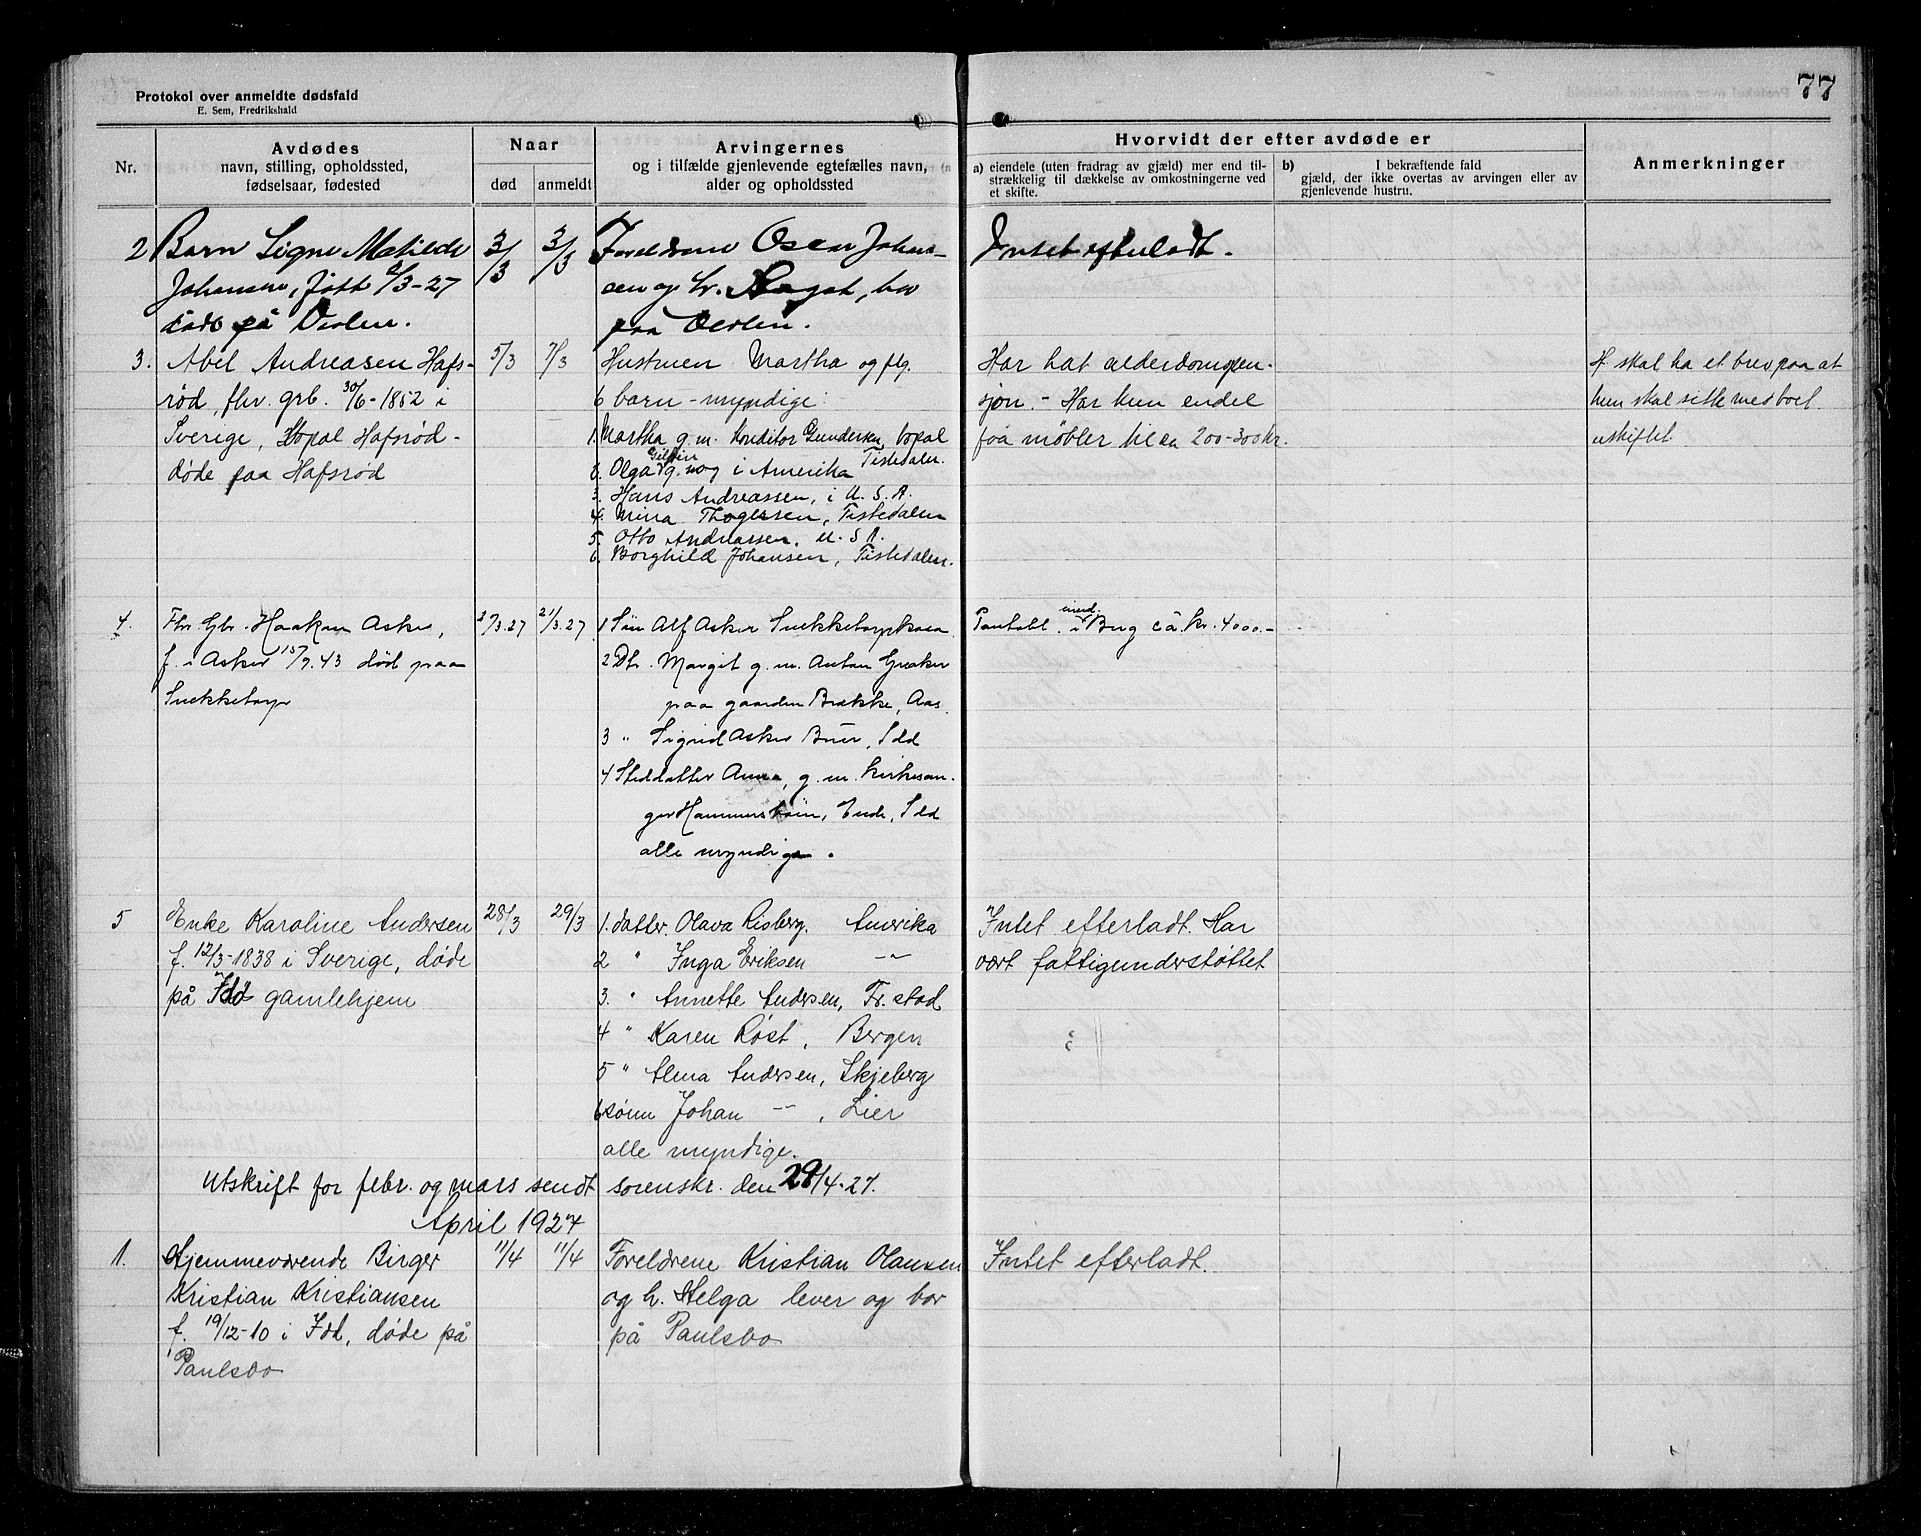 77
Protokol over anmeldte dødsfald
E. Sem, Fredrikshald
Nr.
Avdødes
navn, stilling, opholdssted,
fødselsaar, fødested
Naar
død
anmeldt
Arvingernes
og i tilfælde gjenlevende egtefælles navn,
alder og opholdssted
Hvorvidt der efter avdøde er
a) eiendele (uten fradrag av gjæld) mer end til-
strækkelig til dækkelse av omkostningerne ved
et skifte.
b) I bekræftende fald
gjæld, der ikke overtas av arvingen eller av
gjenlevende hustru.
Anmerkninger
2 Barn Signe Matilde
Johansen, født /3-27
døde på
3/3
3/3
Foreldrene Oscar Johan-
sen og h. bor
paa
Intet efterladt.
3. Abel Andreasen Hafs-
rød, fhv. grb. 30/6-1852 i
Sverige, bopal Hafsrød-
døde paa Hafsrød
5/3
7/3
Hustruen Martha og flg.
6 barn - myndige:
1. Martha g. m. Konditor Gundersen, bopal
Tistedalen.
2. Olga g. m. i Amerika
3. Hans Andreassen, i U. S. A.
4. Mina Thogersen, Tistedalen
5. Otto Andreassen, U. S A.
6. Borghild Johansen, Tistedalen.
Har hat alderdomspen-
sjon. - Har kun endel
faa møbler til ca 200-300 kr.
H skal ha et brev paa at
hun skal sitte med boet
uskiftet
4. Fhv. Gbr. Haaken Asker,
f. i Asker 15/7.43 død paa
Snekketorp
2/3.27
21/3.27
1 Søn Alf Asker Snekketorp
2 Dtr. Margit g. m. Anton Græker
paa gaarden Brække, Aas.
3 " Sigrid Asker Buer, Idd
4 Steddatter Anna, g. m. kirkesan-
ger Hammerstein, Ende, Idd
alle myndige.
Pantobl. i Brug ca. kr. 4000.-
5 Enke Karoline Andersen
f. 12/3-1838 i Sverige, døde
på Idd gamlehjem
28/3
29/3
1. datter. Olava Risberg. Amerika
2 " Inga Eriksen -"-
3. " Annette Andersen, Fr. stad
4 " Karen Røst, Bergen
5 " Alma Andersen, Skjeberg
6 sønn Johan -"- , Lier
alle myndige.
Intet efterladt. Har
vært fattigunderstøttet
Utskrift for febr. og mars sendt sorenskr. den 28/4-27.
April 1927
1. Hjemmeværende Birger
Kristian Kristiansen
f. 19/12-10 i Idd, døde på
Paulsbo
11/4
11/4
Foreldrene Kristian Olausen
og h. Helga lever og bor
på Paulsbo
Intet efterladt.